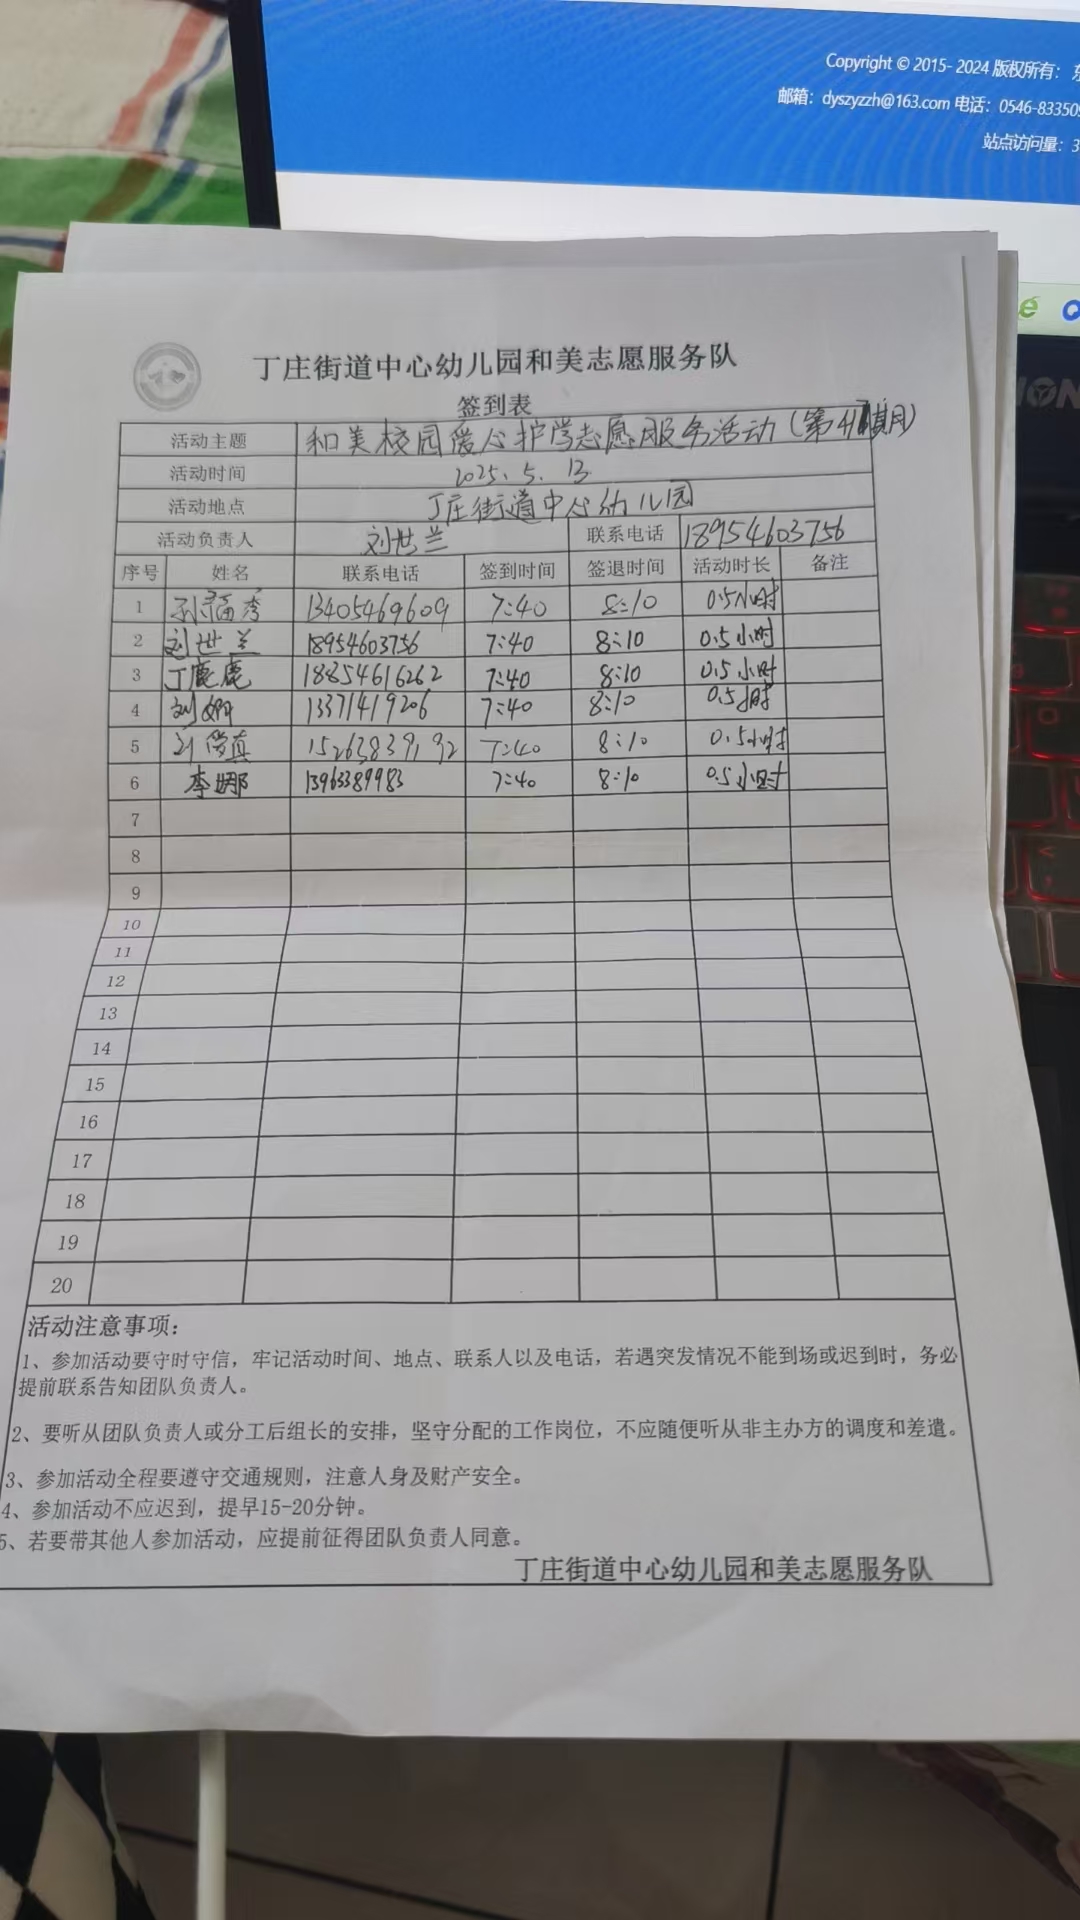 Copyright © 2015- 2024 版权所有：
邮箱：dyszyzzh@163.com 电话：0546-83350
站点访问量：3
丁庄街道中心幼儿园和美志愿服务队
签到表
活动主题 和美校园爱心护学志愿服务活动（第41期）
活动时间 2025.5.13
活动地点 丁庄街道中心幼儿园
活动负责人 刘世兰 联系电话 18954603756
序号 姓名 联系电话 签到时间 签退时间 活动时长 备注
1 孙福秀 13405469609 7:40 8:10 0.5小时
2 刘世兰 18954603756 7:40 8:10 0.5小时
3 丁鹿鹿 18854616262 7:40 8:10 0.5小时
4 刘娜 13371419206 7:40 8:10 0.5小时
5 真 15263839192 7:40 8:10 0.5小时
6 李娜 13963389983 7:40 8:10 0.5小时
7
8
9
10
11
12
13
14
15
16
17
18
19
20
活动注意事项：
1、参加活动要守时守信，牢记活动时间、地点、联系人以及电话，若遇突发情况不能到场或迟到时，务必
提前联系告知团队负责人。
2、要听从团队负责人或分工后组长的安排，坚守分配的工作岗位，不应随便听从非主办方的调度和差遣。
3、参加活动全程要遵守交通规则，注意人身及财产安全。
4、参加活动不应迟到，提早15-20分钟。
5、若要带其他人参加活动，应提前征得团队负责人同意。
丁庄街道中心幼儿园和美志愿服务队